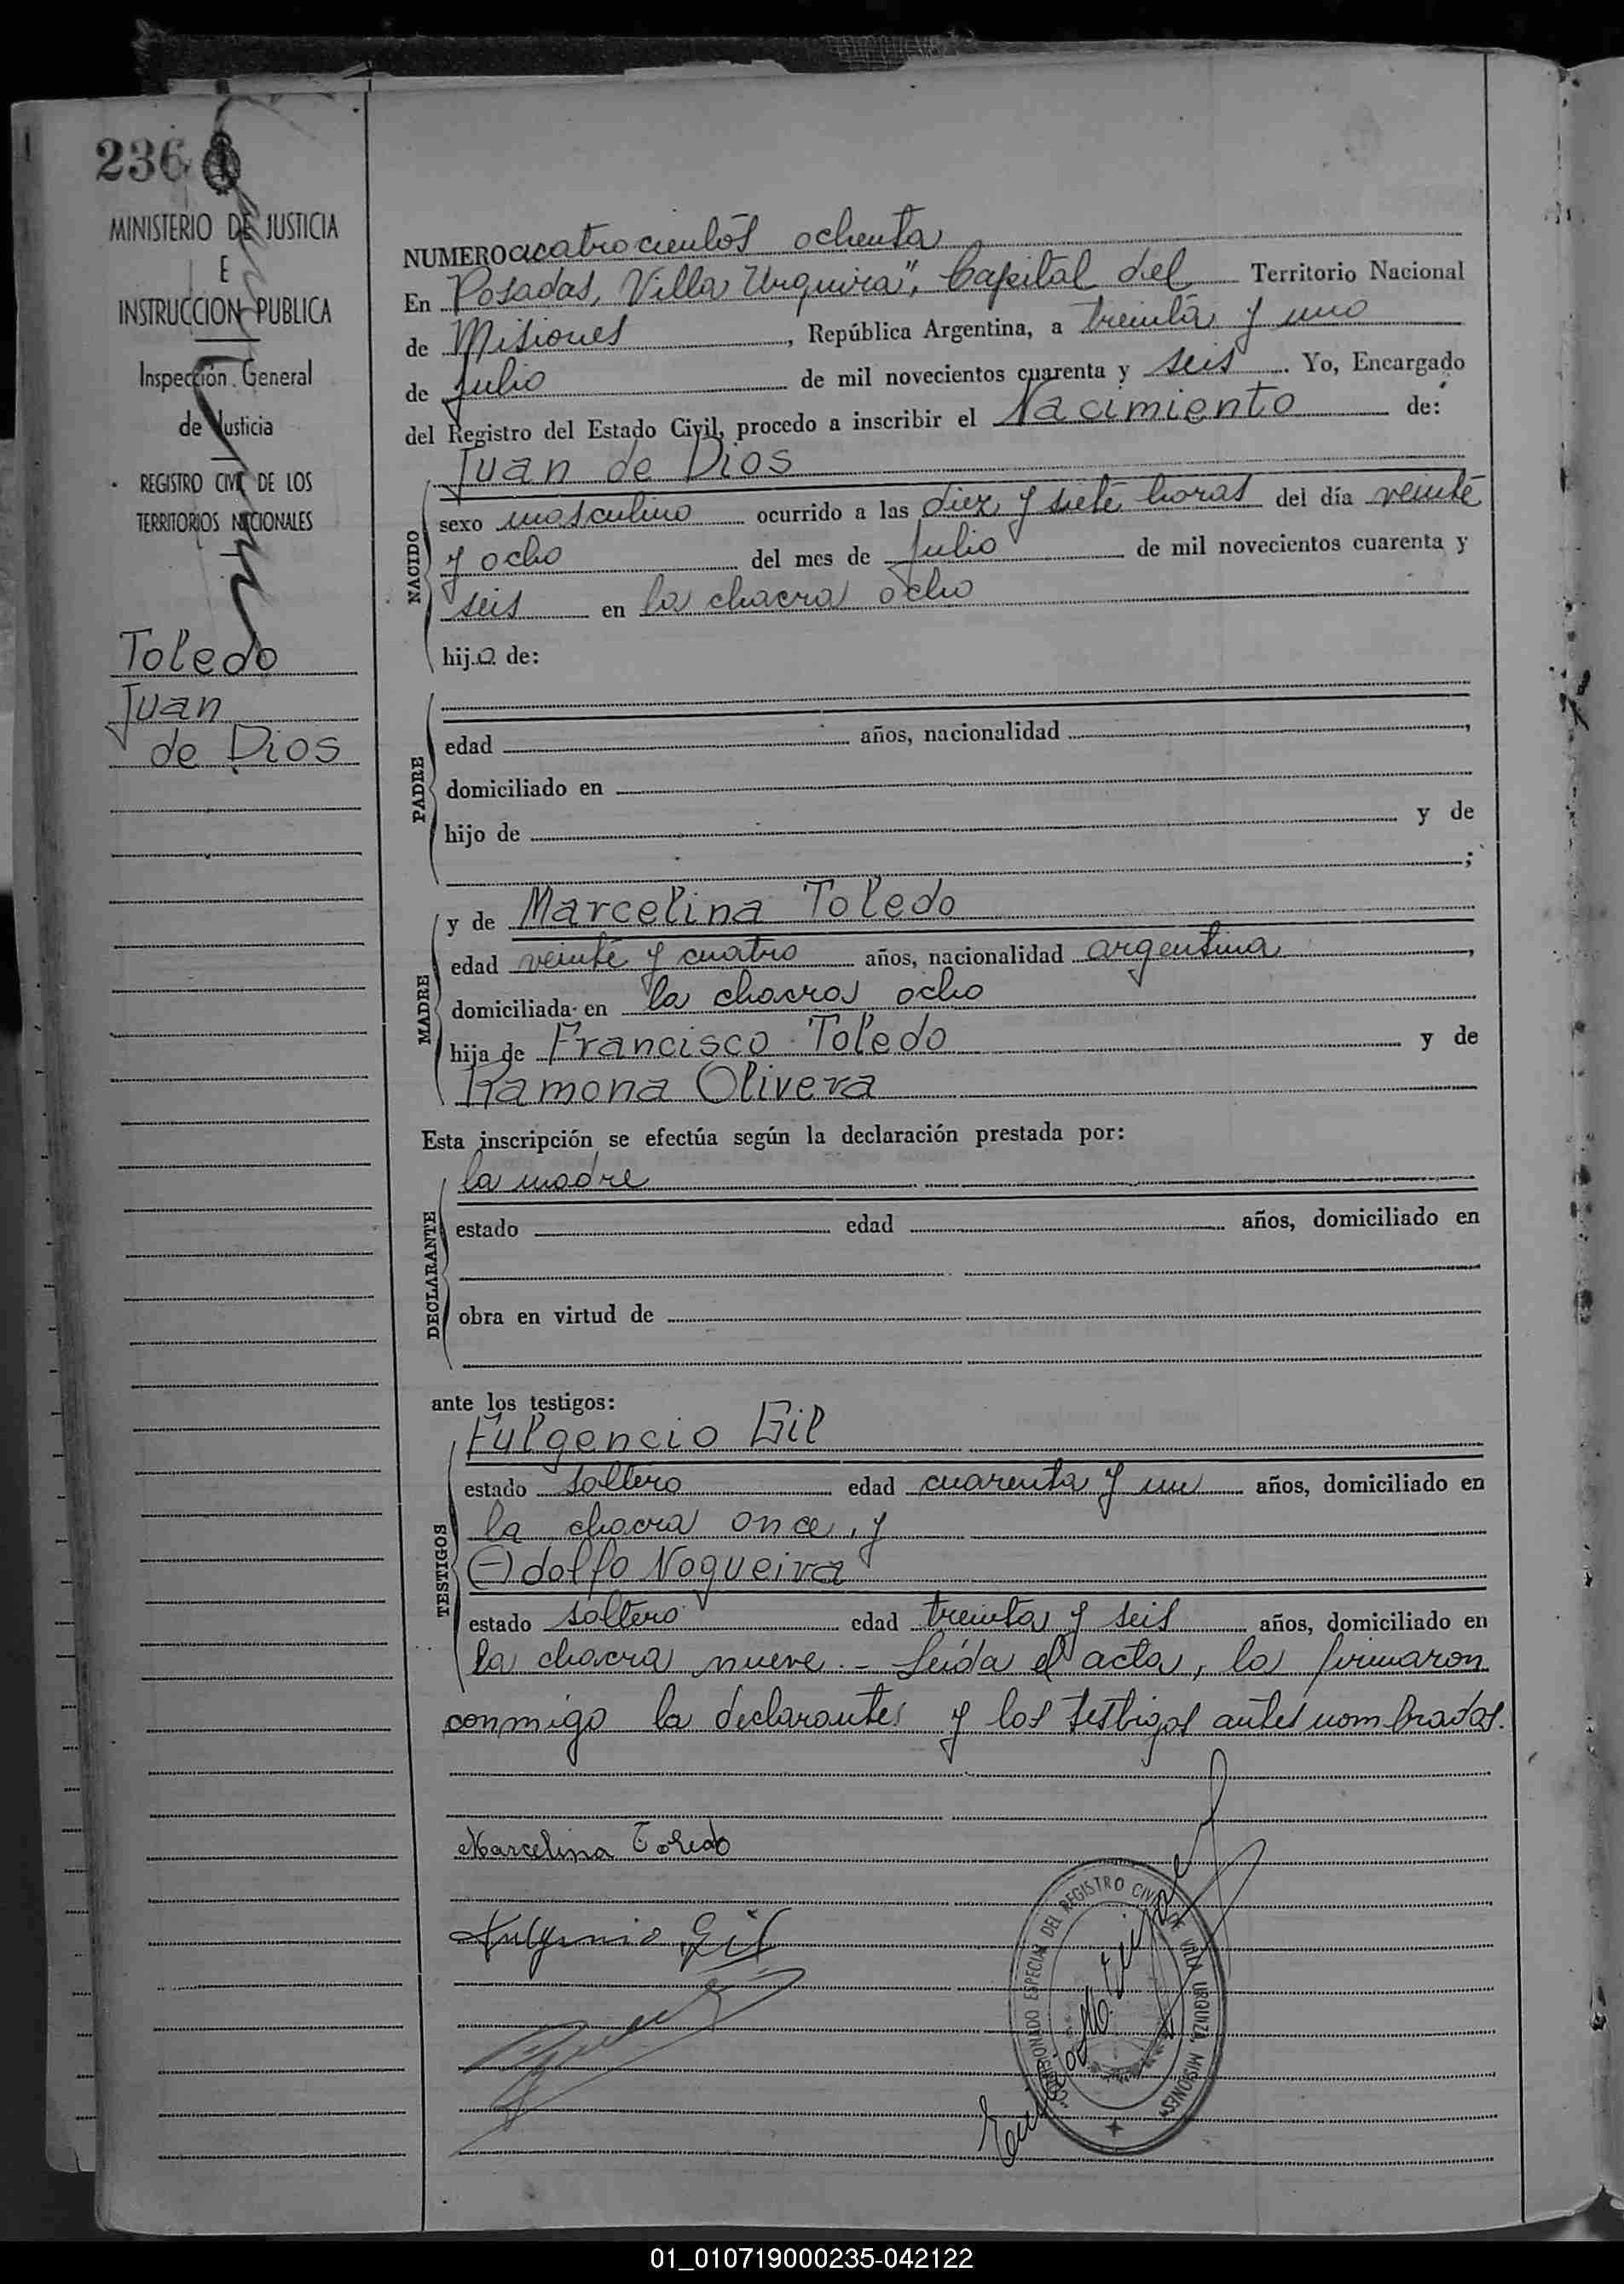 236
MINISTERIO DE JUSTICIA
E
INSTRUCCION PUBLICA
Inspección General
de Justicia
REGISTRO CIVIL DE LOS
TERRITORIOS NACIONALES
Toledo
Juan
de Dios
NUMERO cuatrocientos ochenta
En Posadas, Villa Urquiza", Capital del Territorio Nacional
de Misiones, República Argentina, a treinta y uno
de Julio de mil novecientos cuarenta y seis. Yo, Encargado
del Registro del Estado Civil, procedo a inscribir el Nacimiento de:
Juan de Dios
NACIDO
sexo masculino ocurrido a las diez y siete horas del día veinte
y ocho del mes de Julio de mil novecientos cuarenta y
seis en la chacra ocho
hijo de:
PADRE
edad años, nacionalidad ,
domiciliado en
hijo de y de
;
MADRE
y de Marcelina Toledo
edad veinte y cuatro años, nacionalidad argentina,
domiciliada en la chacra ocho
hija de Francisco Toledo y de
Ramona Olivera
Esta inscripción se efectúa según la declaración prestada por:
DECLARANTE
la madre
estado edad años, domiciliado en
obra en virtud de
ante los testigos:
TESTIGOS
Fulgencio Gil
estado soltero edad cuarenta y un años, domiciliado en
la chacra once, y
Adolfo Nogueira
estado soltero edad treinta y seis años, domiciliado en
la chacra nueve. - Leída el acta, la firmaron
conmigo la declarantes y los testigos antes nombrados.
Marcelina Toledo
Fulgencio Gil
COMISIONADO ESPECIAL DEL REGISTRO CIVIL DE VILLA URQUIZA, MISIONES
01_010719000235-042122